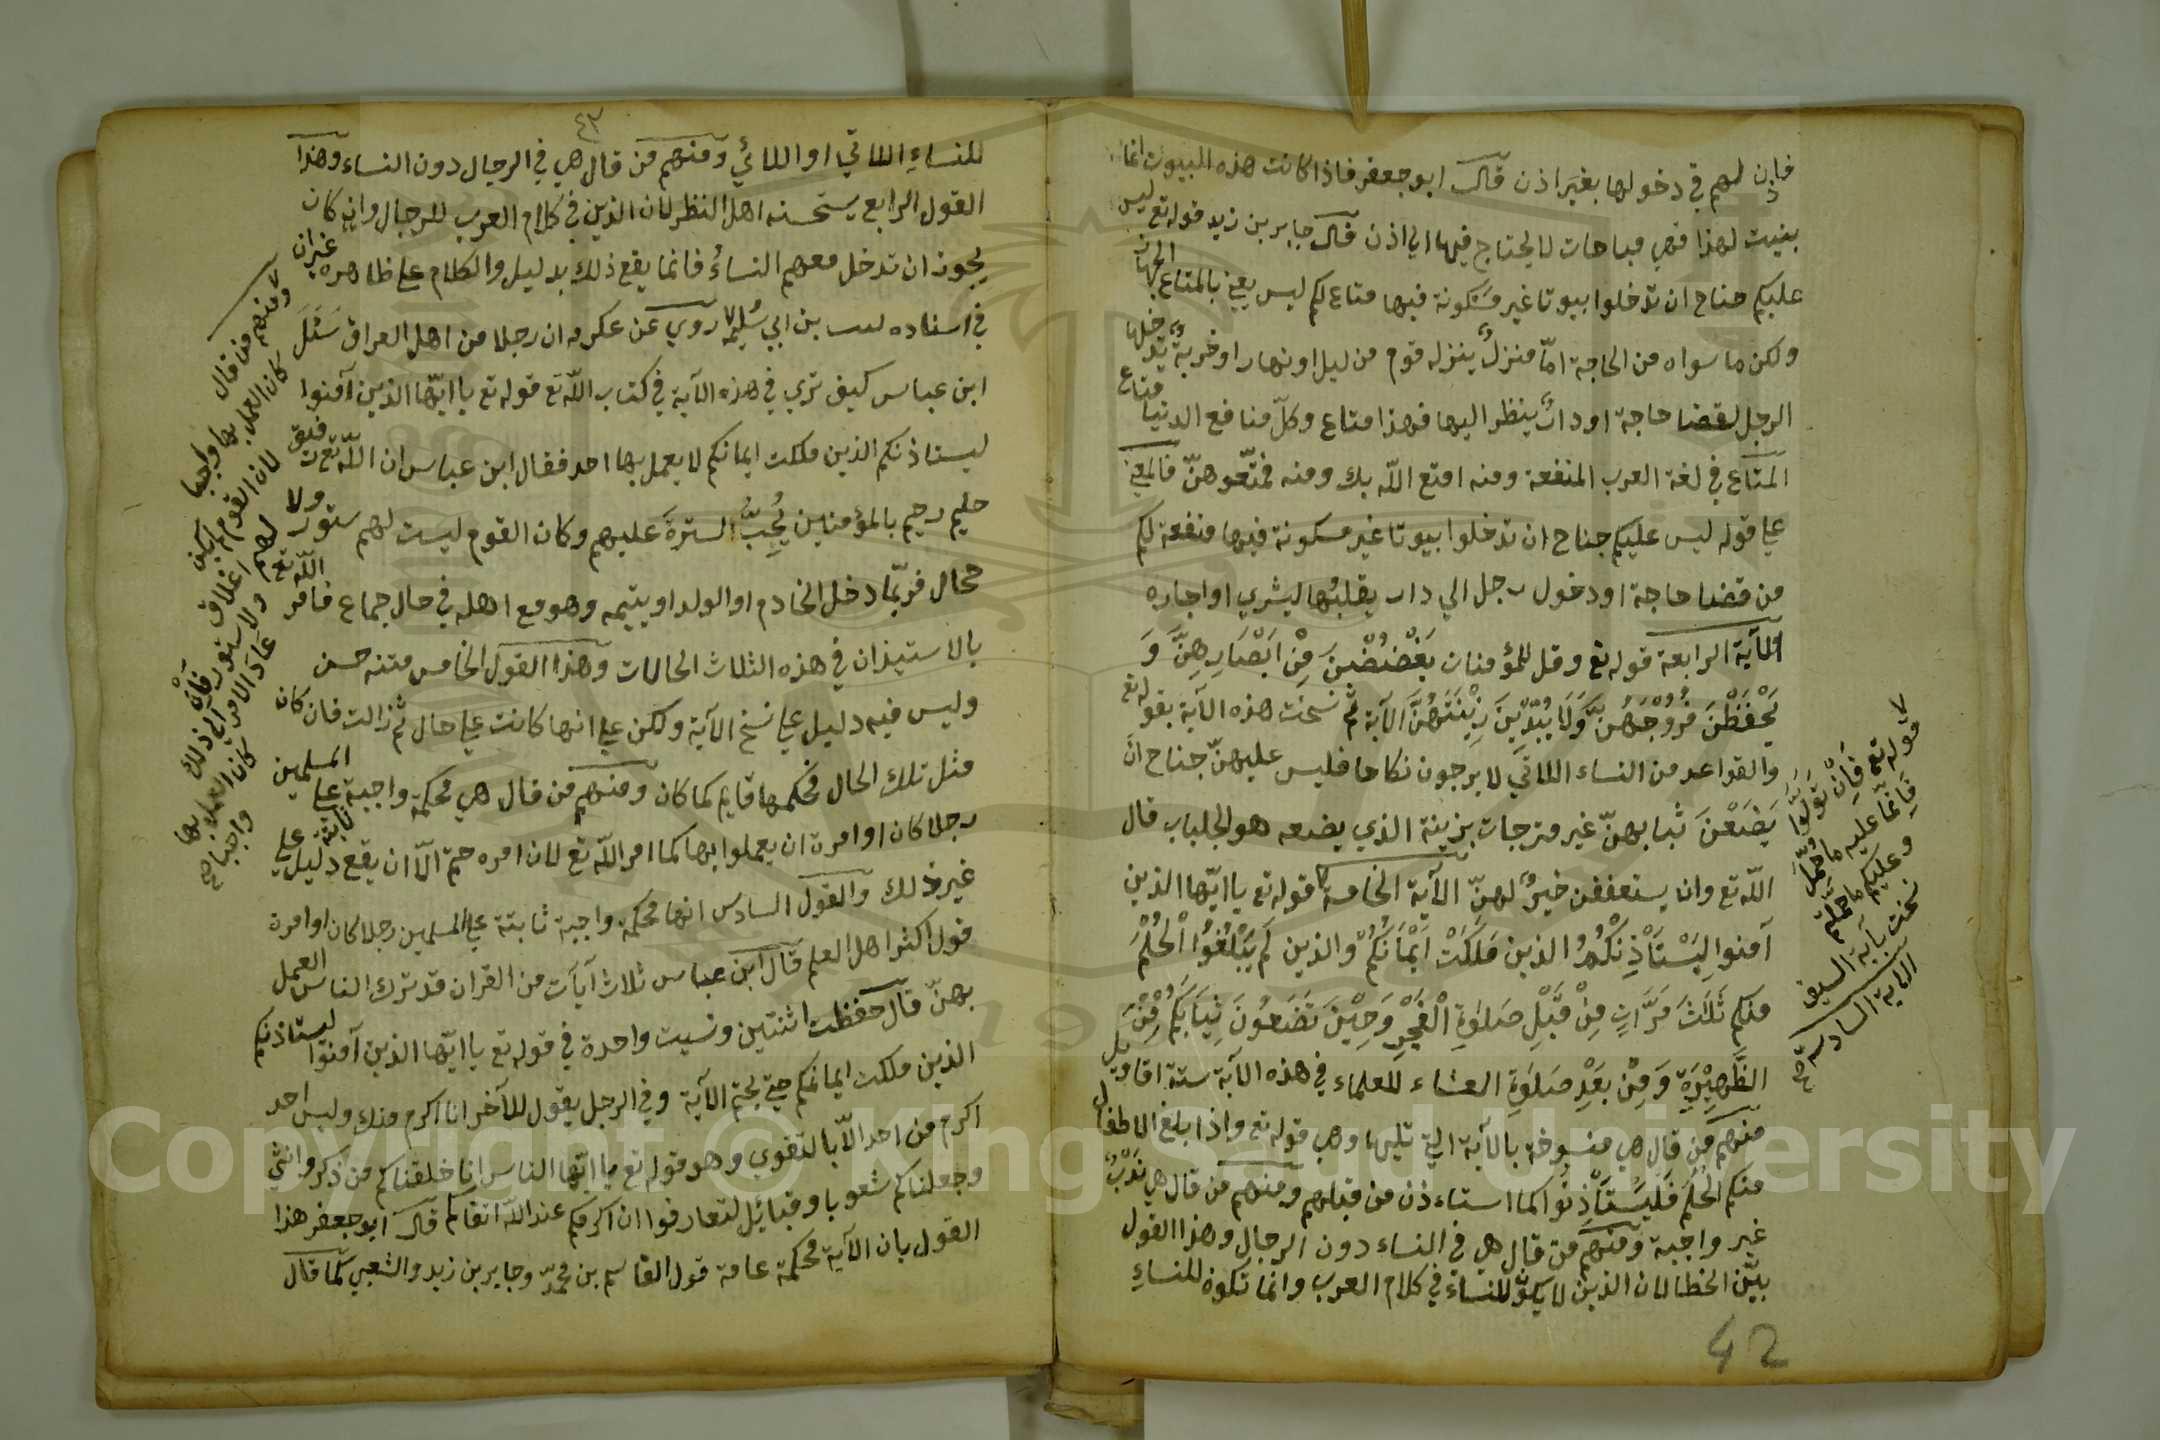 فاذن لهم في دخولها بغير اذن قال ابو جعفر فاذا كانت هذه البيوت انما
بنيت لهذا فهي مباحات لا يحتاج فيها الي اذن قال جابر بن زيد قوله تع ليس
عليكم جناح ان تدخلوا بيوتا غير مسكونة فيها متاع لكم ليس يعني بالمتاع الجهاز
ولكن ما سواه من الحاجة امّا منزلٌ ينزله قوم من ليل او نهار او خربةٌ تدخلها
الرجل لقضا حاجة او دارٌ ينظر اليها فهذا متاع وكلّ منافع الدنيا متاع
المتاع في لغة العرب المنفعة ومنه امتع اللّه بك ومنه فمتّعوهنّ فالمعني
علي قوله ليس عليكم جناح ان تدخلوا بيوتا غير مسكونة فيها منفعة لكم
من قضا حاجة او دخول رجل الي دار يقلبُها ليشري او اجاره
الآية الرابعة قوله تع وقل للمؤمنات يَغْضُضْنَ مِنْ اَبْصَارِهِنَّ وَ
يَحْفَظْنَ فُرُوْجَهُنَّ وَلَا يُبْدِيْنَ زِيْنَتَهُنَّ الآية ثمّ نسخت هذه الآية بقوله تع
والقواعد من النساء اللاتي لا يرجون نكاحا فليس عليهنّ جناح انّ
يَضَعْنَ ثيابهنّ غير متبرجات بزينة الذي يضعه هو الجلباب قال
اللّه تع وان يستعففن خيرٌ لهنّ الآية الخامسة قوله تع يا ايّها الذين
آمنوا لِيَسْتَأْذِنْكُمُ الذين مَلَكَتْ اَيْمَانُكُمْ والذين لَمْ يَبْلُغُوْا الْحُلُمَ
منكم ثَلَاثَ مَرَّاتٍ مِنْ قَبْلِ صَلوٰةِ الْفَجْرِ وَحِيْنَ تَضَعُوْنَ ثِيَابَكُمْ مِنَ
الظَّهِيْرَةِ وَمِنْ بَعْدِ صَلوٰةِ العشاء للعلماء في هذه الآية ستة اقاويل
منهم من قال هي منسوخة بالآية التي تليها وهي قوله تع واذا بلغ الاطفال
منكم الحُلُمَ فَلْيَسْتَأْذِنُوا كما استاءذن من قبلهم ومنهم من قال هي ندبٌ
غير واجبة ومنهم من قال هي في النساء دون الرجال وهذا القول
بيّن الخطا لان الذين لا يكون للنساء في كلام العرب وانما تكون للنساءِ
قوله تع فَاِنْ تَوَلَّوْا
فَاِنَّمَا عليه ما حُمِّلَ
وعليكم ما حملتم
نسخت بآية السيف
الآية السادسة صح
42
٤٣
للنساءِ اللاتي او اللائي ومنهم من قال هي في الرجال دون النساء وهذا
القول الرابع يستحسنه اهل النظر لان الذين في كلام العرب للرجال وان كان
يجوز ان تدخل معهم النساءُ فانما يقع ذلك بدليل والكلام علي ظاهره غير ان
في اسناده ليث بن ابي سُليم روي عن عكرمه ان رجلا من اهل العراق سَئَلَ
ابن عباس كيف تري في هذه الآية في كتاب اللّه تع قوله تع يا ايّها الذين آمنوا
ليستاذنكم الذين ملكت ايمانكم لا يعمل بها احد فقال ابن عباس ان اللّه تع رفيق
حليم رحيم بالمؤمنين يُحِبُّ السترةَ عليهم وكان القوم ليست لهم ستور ولا
حجال فربّما دخل الخادم او الولد او يتيمه وهو مع اهله في حال جماع فامر اللّه تع
بالاستيذان في هذه الثلاث الحالات وهذا القول الخامس متنه حسن
وليس فيه دليل علي نسخ الآية ولكن علي انها كانت علي حال ثمّ زالت فان كان
مثل تلك الحال فحكمها قايم كما كان ومنهم من قال هي محكمة واجبة علي المسلمين
رجلا كان او امرة ان يعملوا بها كما امر اللّه تع لان امره حتم الّا ان يقع دليل علي
غير ذلك والقول السادس انها محكمة واجبة ثابتة علي المسلمين رجلا كان او امرة
قول اكثر اهل العلم قال ابن عباس ثلاث آيات من القران قد ترك الناس العمل
بهنّ قال حفظت اثنتين ونسيت واحدة في قوله تع يا ايّها الذين آمنوا ليستاذنكم
الذين ملكت ايمانكم حتي يختم الآية وفي الرجل يقول للآخر انا اكرم منك وليس احد
اكرم من احد الّا بالتقوي وهو قوله تع يا ايّها الناس انا خلقناكم من ذكر وانثي
وجعلناكم شعوبا وقبائل لتعارفوا ان اكرمكم عند اللّه اتقاكم قال ابو جعفر هذا
القول بان الآية محكمة عامة قول القاسم بن محمدّ وجابر بن زيد والشعبي كما قال
ومنهم من قال
كان العمل بها واجبا
لان القوم لم يكن
لهم اغلاق ولا ستور فان
عاد الامر الي ذلك
كان العمل بها
واجبا صح